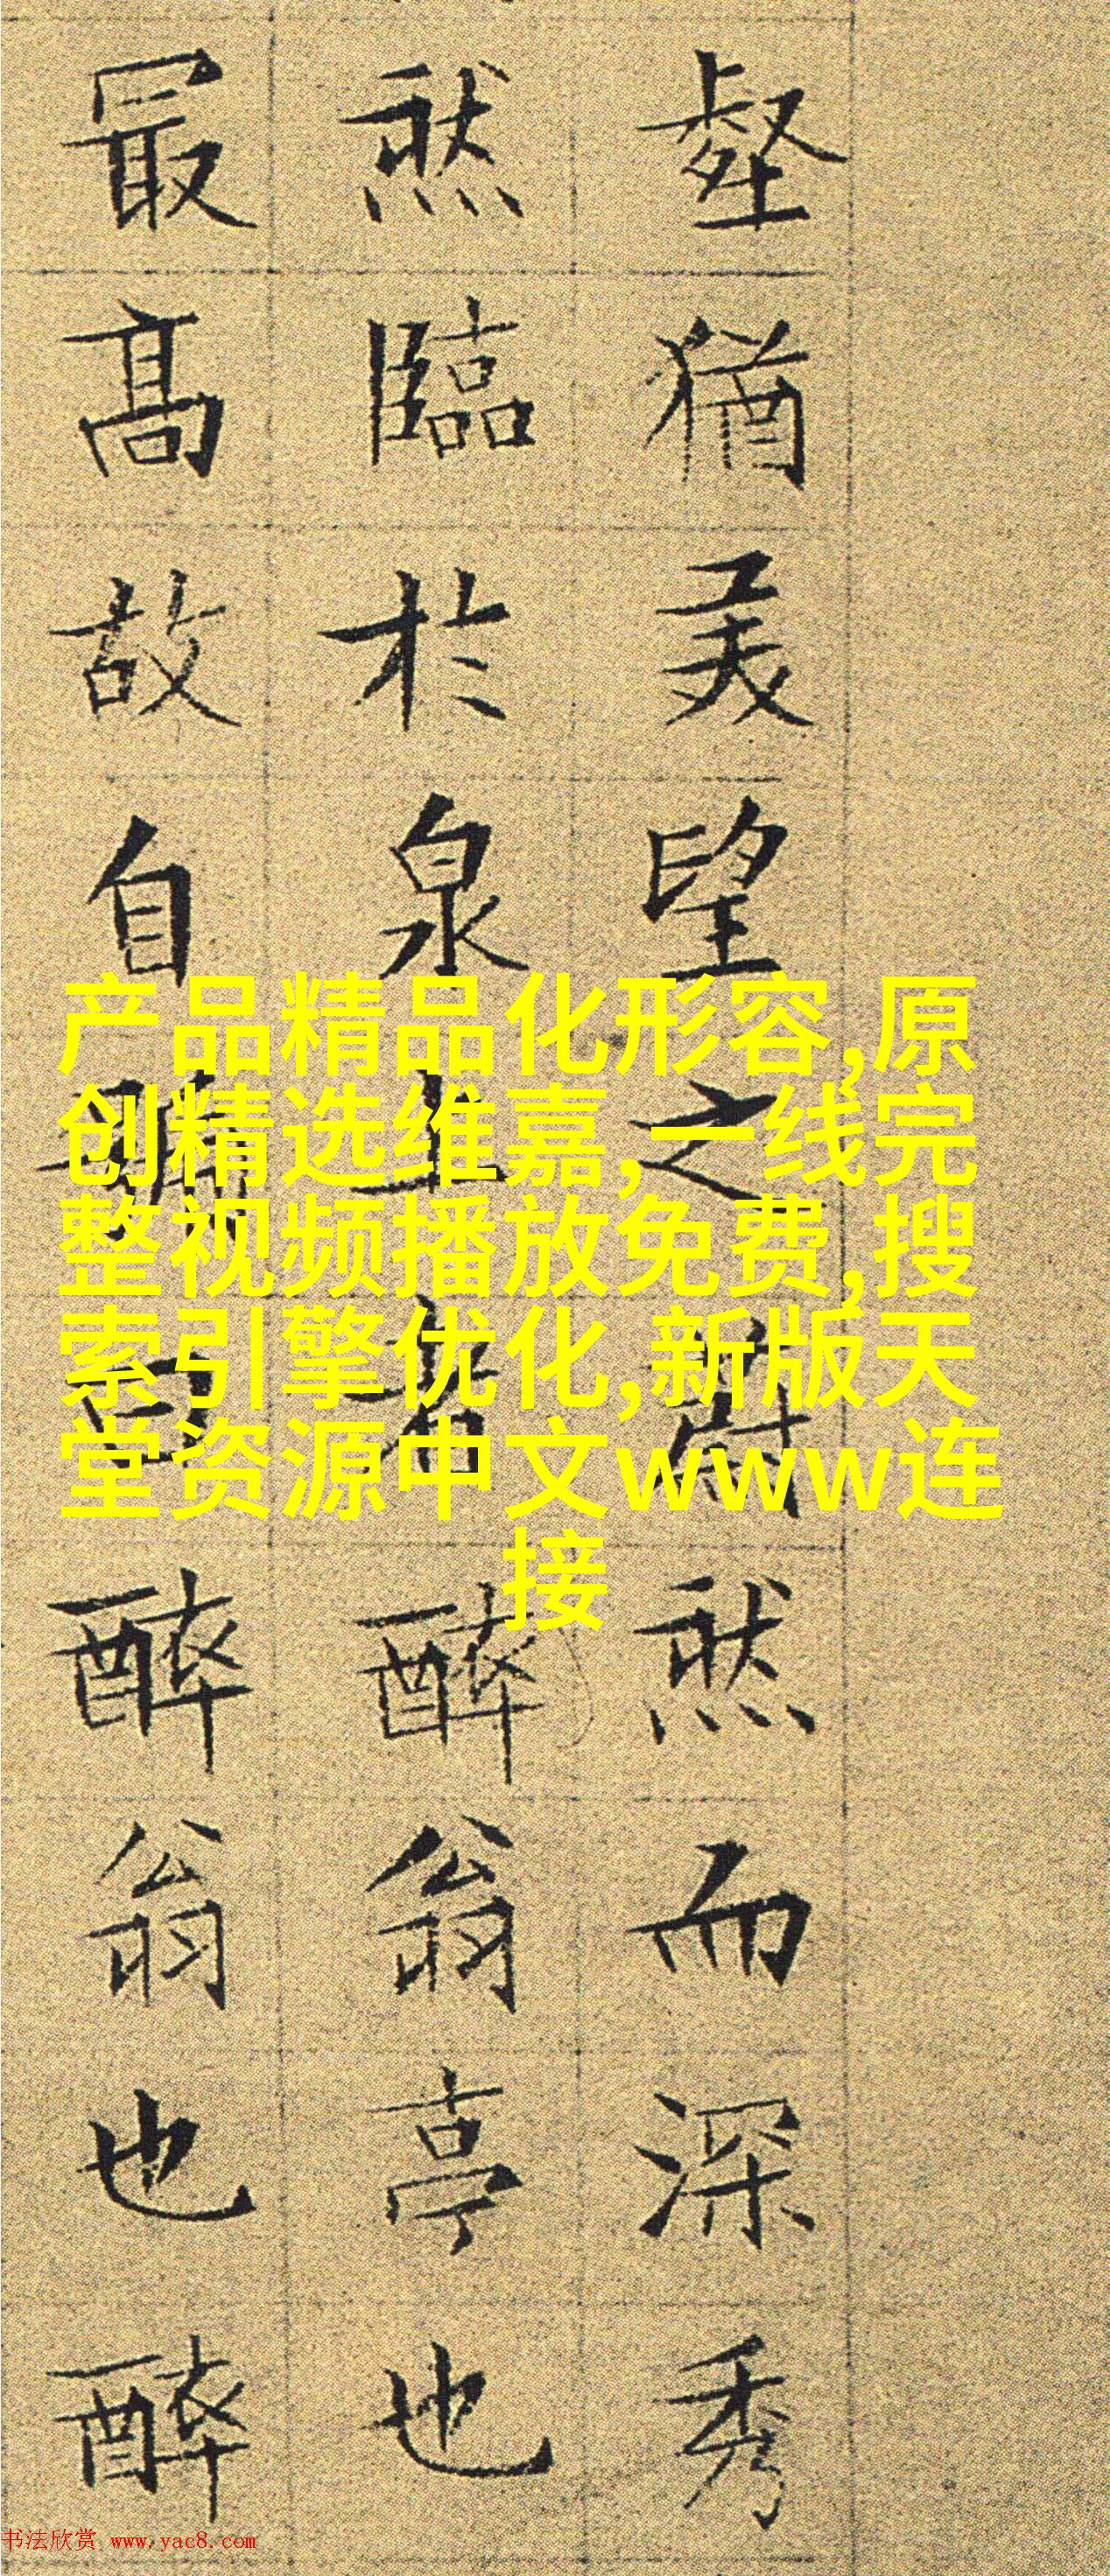 壑猶美望之蔚然而深秀
然臨於泉上者醉翁亭也
最高故自號曰醉翁也醉
产品精品化形容,原
创精选维嘉,一线完
整视频播放免费,搜
索引擎优化,新版天
堂资源中文www连
接
书法欣赏 www.yac8.com